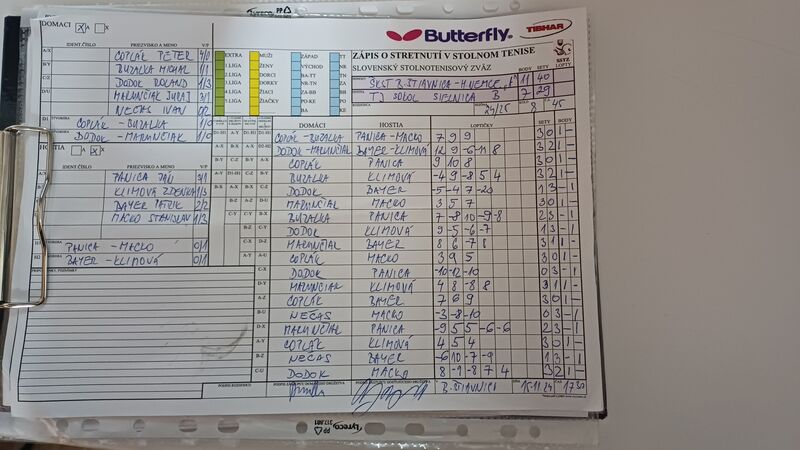 DOMÁCI X A
Butterfly
TIBHAR
IDENT.ČÍSLO PRIEZVISKO A MENO V/P
ZÁPIS O STRETNUTÍ V STOLNOM TENISE
SLOVENSKÝ STOLNOTENISOVÝ ZVÄZ
SSTZ
SETY BODY LOPTY
A/X COPLÁK PETER 4/0
B/Y BUZALKA MICHAL 1/1
DODOK ROLAND 1/3
D/U MARUNČIAK JURAJ 3/1
NEČAS IVAN 0/2
EXTRA MUŽI ZÁPAD TT
1.LIGA ŽENY VÝCHOD NR
2.LIGA DORCI BA-TT TN
3.LIGA DORKY NR-TN ZA
4.LIGA ŽIACI ZA-BB BB
5.LIGA ŽIAČKY PO-KE PO
BA KE
ŠKST B.ŠTIAVNICA-HNIEMCE 11 40
TJ SOKOL SIELNICA B 7 29
24/25 8 45
COPLÁK - BUZALKA 1/0
DODOK - MARUNČIAK 1/0
HOSTIA A X
IDENT.ČÍSLO PRIEZVISKO A MENO V/P
PANICA JÁN 3/1
KLIMOVÁ ZDENKA 1/3
BAYER PATRIK 2/2
MACKO STANISLAV 1/3
PANICA - MACKO 0/1
BAYER - KLIMOVÁ 0/1
DOMÁCI HOSTIA LOPTIČKY SETY BODY
COPLÁK - BUZALKA PANICA - MACKO 7 9 9 3 0 1 -
DODOK - MARUNČIAK BAYER - KLIMOVÁ 12 9 -6 -11 8 3 2 1 -
COPLÁK PANICA 9 10 8 3 0 1 -
BUZALKA KLIMOVÁ -4 9 -8 5 4 3 2 1 -
DODOK BAYER -5 -4 7 -20 1 3 - 1
MARUNČIAK MACKO 3 5 7 3 0 1 -
BUZALKA PANICA 7 -8 10 -9 -8 2 3 - 1
DODOK KLIMOVÁ 9 -5 -6 -7 1 3 - 1
MARUNČIAK BAYER 8 6 -7 8 3 1 1 -
COPLÁK MACKO 3 9 5 3 0 1 -
DODOK PANICA -10 -12 -10 0 3 - 1
MARUNČIAK KLIMOVÁ 4 8 -8 8 3 1 1 -
COPLÁK BAYER 7 6 9 3 0 1 -
NEČAS MACKO -3 -8 -10 0 3 - 1
MARUNČIAK PANICA -9 5 5 -6 -6 2 3 - 1
COPLÁK KLIMOVÁ 4 5 4 3 0 1 -
NEČAS BAYER -6 10 -7 -9 1 3 - 1
DODOK MACKO 8 -9 -8 7 4 3 2 1 -
B. ŠTIAVNICI 15.11.24 17 30